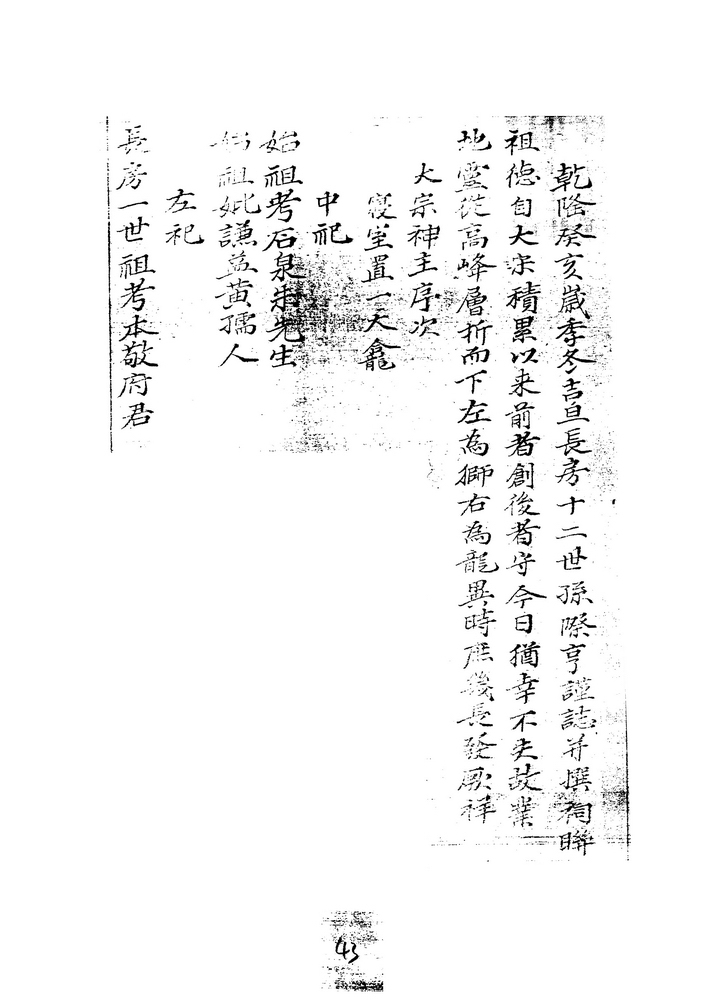 乾隆癸亥歲季冬吉旦長房十二世孫際亨謹誌并撰祠聯
祖德自大宗積累以来前者創後者守今日猶幸不失故業
地靈從高峰層折而下左為獅右為龍異時庶幾長發厥祥
大宗神主序次
寢室置一大龕
中祀
始祖考石泉朱先生
始祖妣謙益黃孺人
左祀
長房一世祖考本敬府君
43